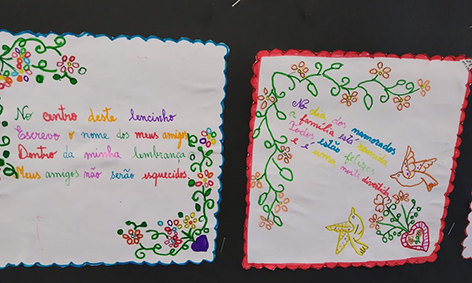 No centro deste lencinho
Escrevo o nome dos meus amigos
Dentro da minha lembrança
Meus amigos não serão esquecidos
No dia dos namorados
a família está reunida
Todos estão felizes
uma noite divertida